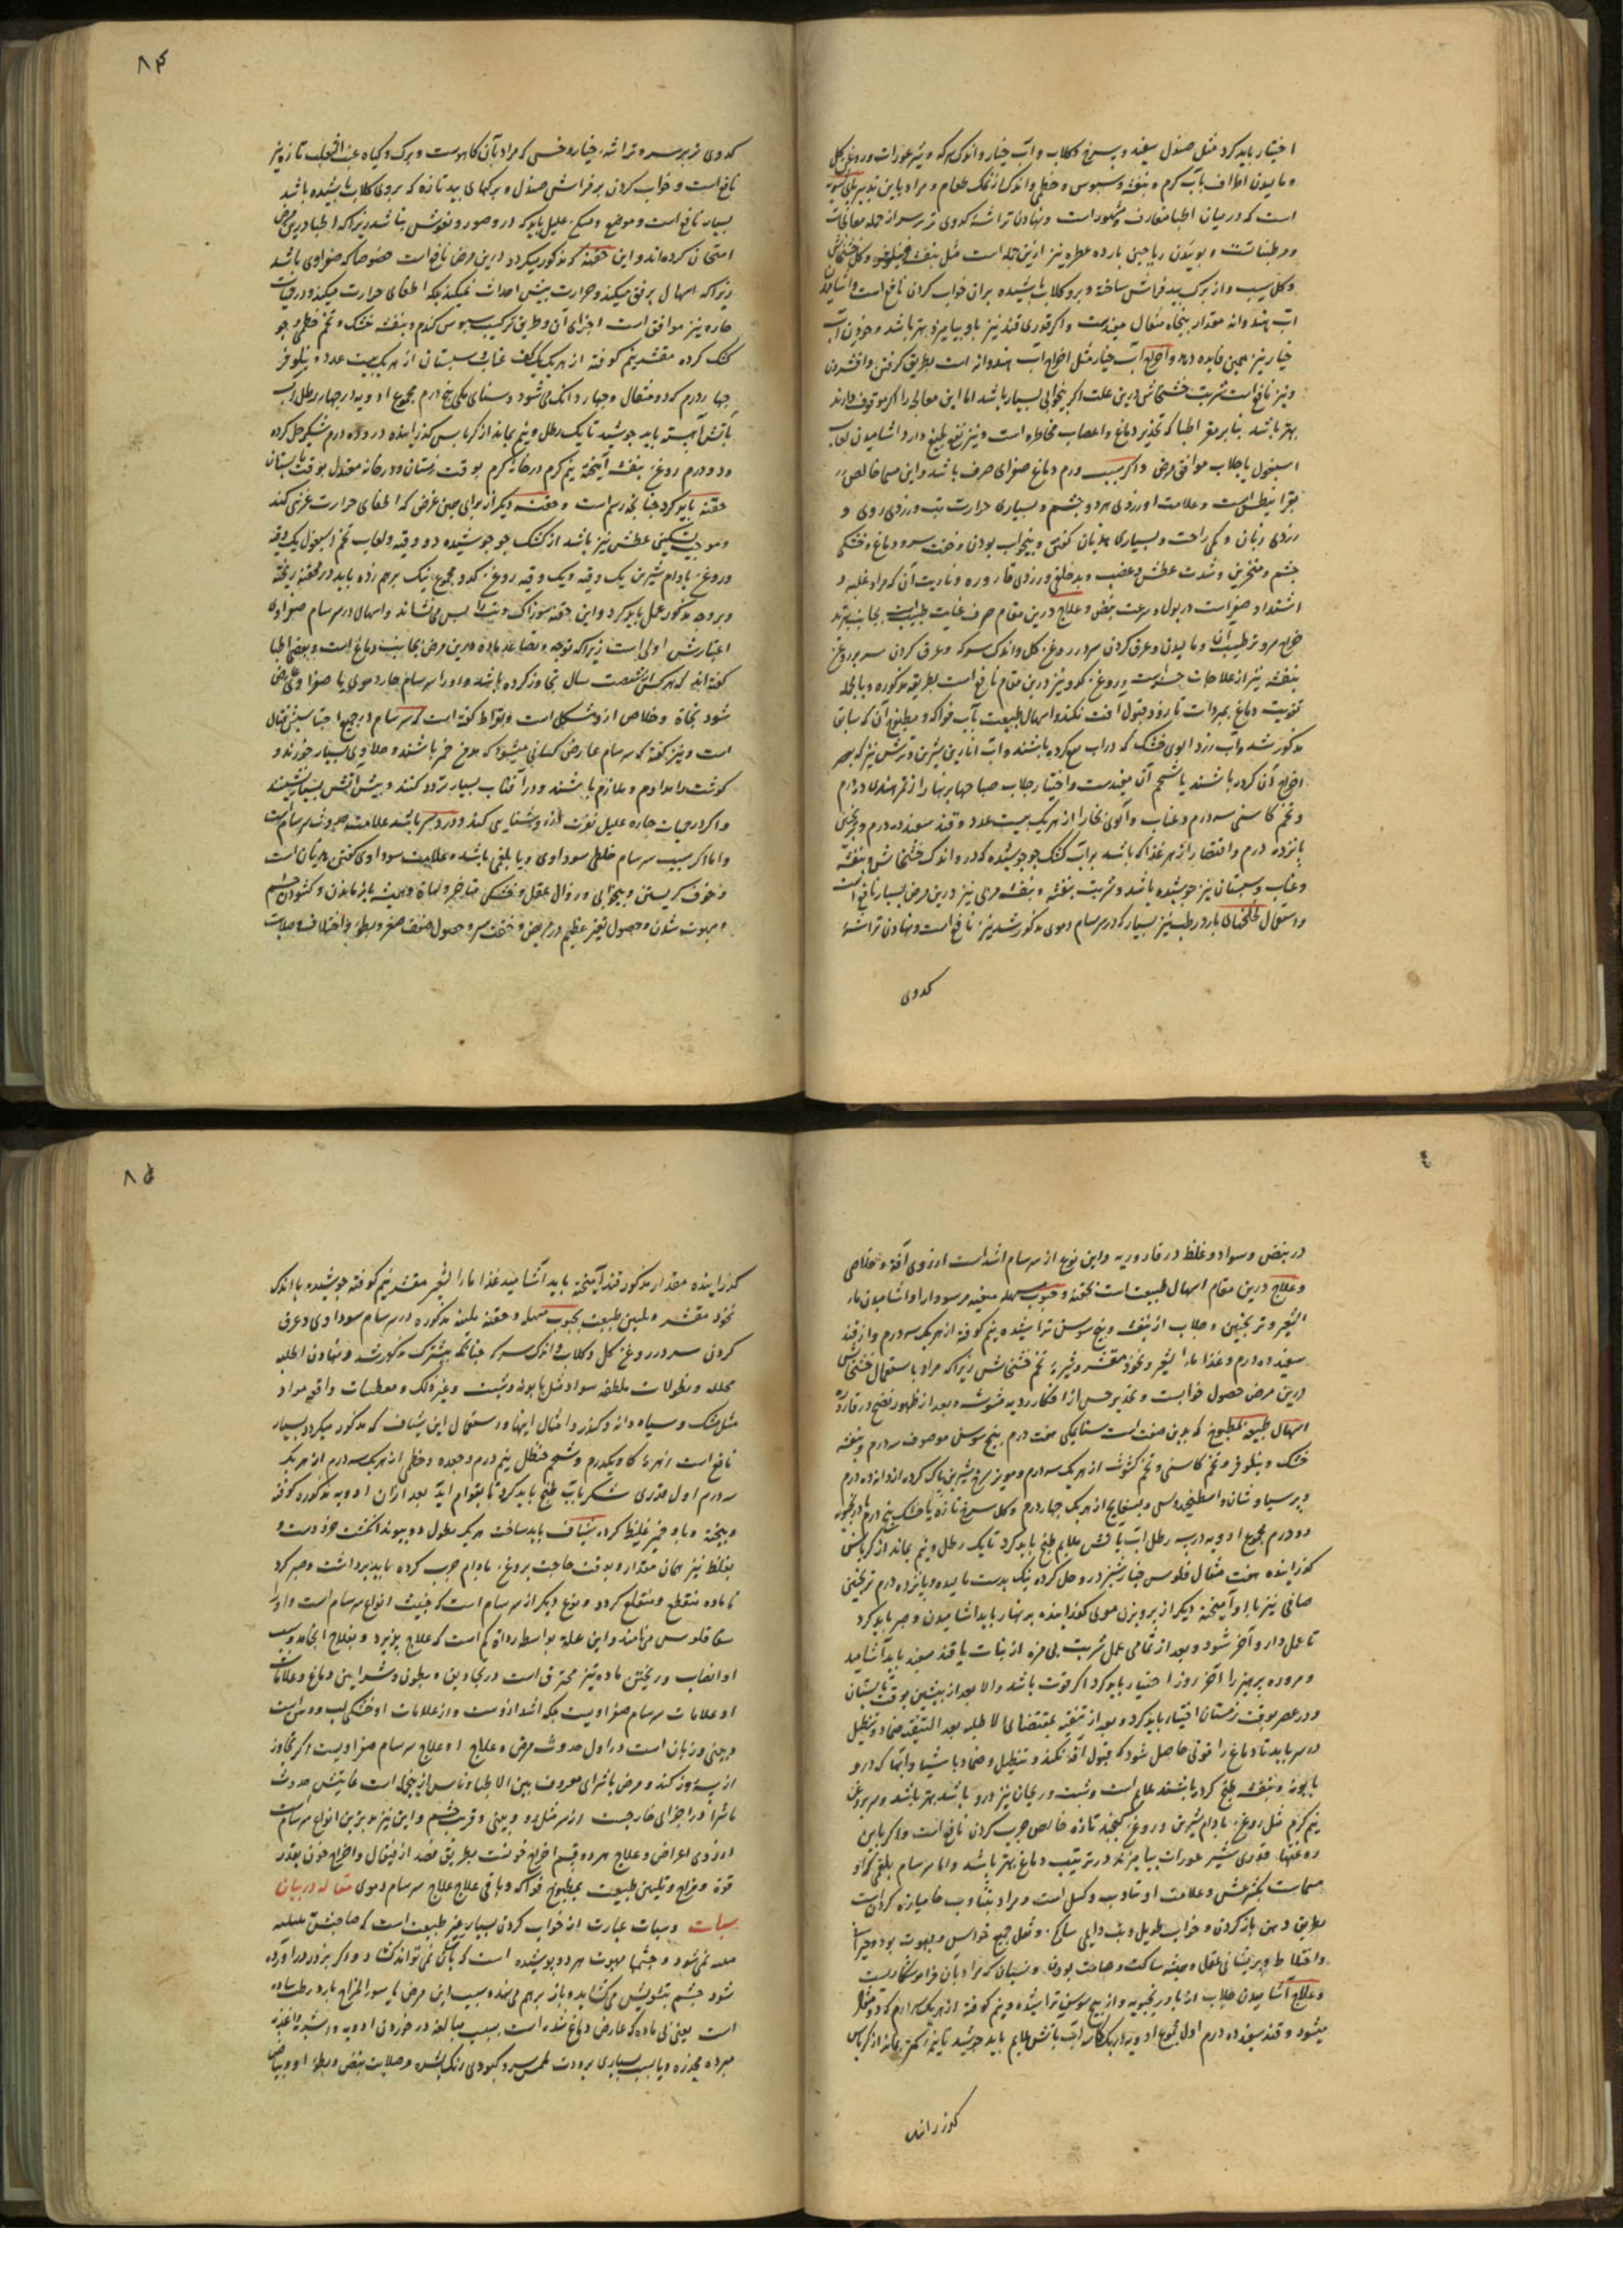 اختیار باید کرد مثل صندل سفید و سرخ و گلاب و آب خیار و اندک سرکه و شیر عورات و روغن گل
و مالیدن اطراف بآب گرم و بنفشه و سبوس و خطمی و اندک از نمک طعام و مراد باین تدبیر پای شویه
است که در میان اطبا متعارف و مشهور است و نهادن تراشه کدوی تر بر سر از جمله معالجات
و مرطبات است و بوئیدن ریاحین بارده عطره نیز ازین جمله است مثل بنفشه و نیلوفر و گل خشخاش
و گل سیب و از برگ بید فراش ساخته و برو گلاب پاشیده بران خواب کردن نافع است و اشامیدن
آب هندوانه مقدار پنجاه مثقال مفیدست و اگر قدری قند نیز باو بیامیزد بهتر باشد و خوردن آب
خیار نیز همین فایده دهد و اخراج آب خیار مثل اخراج آب هندوانه است بطریق گرفتن و افشردن
و نیز نافع است شربت خشخاش درین علت اگر بیخوابی بسیار باشد اما این معالجه را اگر موقوف دارند
بهتر باشد بنابر مقرر اطبا که تخدیر دماغ و اعصاب مخاطره است و نیز نفع بلیغ دارد اشامیدن لعاب
اسبغول با جلاب موافق مرض و اگر سبب ورم دماغ صفرای صرف باشد و این مسما خالص
بقرانیطس است و علامت او زردی هر دو چشم و بسیاری حرارت تب و زردی روی و
زردی زبان و کمی راحت و بسیاری هذیان گفتن و بیخواب بودن و خفت سر و دماغ و خشکی
چشم و منخرین و شدت عطش و غضب و بدخلقی و زردی قاروره و ناریت آن که مراد غلبه و
اشتداد صفر است در بول و سرعت نبض و علاج درین مقام صرف عنایت طبیب است بجانب تبرید
و ترطیب آن و مالیدن و عرق کردن سر در روغن گل و اندک سرکه و عرق کردن سر بروغن
بنفشه نیز از علاجات حسنه است و روغن کدو نیز درین مقام نافع است بطریقه مذکوره و بالجمله
تقویت دماغ بمبردات تا زود قبول افت نکند و اسهال طبیعت بآب فواکه و مطبوخ آن که سابق
مذکور شد و آب زرد الوی خشک که در اب نقع کرده باشند و آب انارین شیرین و ترش نیز که بعصر
اخراج آن کرده باشند با شحم آن مفیدست و اختیار جلاب صباحها بر نهار از تمر هندی ده درم
و تخم کاسنی سه درم و عناب و آلوی بخارا از هر یک بیست عدد و قند سفید ده درم و ترنجبین
پانزده درم و اقتصار از هر غذا که باشد بر آب کشک جو جوشیده که در و اندک خشخاش و بنفشه
و عناب و سپستان نیز جوشیده باشد و شربت بنفشه و بنفشه مربی نیز درین مرض بسیار نافع است
و استعمال لخلخهای بارد رطب نیز بسیار که در سرسام دموی مذکور شد نیز نافع است و نهادن تراشه
کدوی
۸۴
کدوی تر بر سر و تراشه خیار و خس که مراد بآن کاهوست و برگ و گیاه عنب الثعلب تازه نیز
نافع است و خواب کردن بر فراش صندل و برگهای بید تازه که بروی گلاب پاشیده باشد
بسیار نافع است و موضع و مسکن علیل باید که در و صور و نقوش نباشد زیرا که اطبا درین مرض
امتحان کرده اند و این حقنه که مذکور میگردد درین مرض نافع است خصوصا که صفراوی باشد
زیرا که اسهال برفق میکند و حرارت بیش احداث نمیکند بلکه اطفای حرارت میکند و در حمیات
حاره نیز موافق است اجزای آن و طریق ترکیب سبوس گندم و بنفشه خشک و تخم خطمی و جو
خشک کرده مقشر نیم کوفته از هر یک یک کف عناب و سپستان از هر یک بیست عدد و نیلوفر
چهار درم که دو مثقال و چهار دانگ می شود و سنای مکی پنج درم مجموع ادویه در چهار رطل آب
بآتش آهسته باید جوشید تا یک رطل و نیم بماند از کرباس گذرانیده در و ده درم شکر حل کرده
و ده درم روغن بنفشه آمیخته نیم گرم در خانه گرم بوقت زمستان و در خانه معتدل بوقت تابستان
حقنه باید کرد چنانچه رسم است و حقنه دیگر از برای همین غرض که اطفای حرارت غریبی کند
و موجب تسکین عطش نیز باشد از کشک جو جوشیده دو وقیه و لعاب تخم اسبغول یک وقیه
و روغن بادام شیرین یک وقیه و یک وقیه روغن کدو مجموع نیک بر هم زده باید در محقنه ریخته
و بروجه مذکور عمل باید کرد و این حقنه سوزاک و تب را بس می نشاند و اسهال در سرسام صفراوی
اعتبارش اولی است زیرا که توجه و تصاعد ماده درین مرض بجانب دماغ است و بعضی اطبا
گفته اند که هر کس از شصت سال تجاوز کرده باشد و او را سرسام حار دموی یا صفراوی عارض
شود نجاة و خلاص ازو مشکل است و بقراط گفته است که سرسام در جمیع اجناسش قتال
است و نیز گفته که سرسام عارض کسانی میشود که مدمن خمر باشند و حلاوی بسیار خورند و
گوشت را مداوم و ملازم باشند و در آفتاب بسیار تردد کنند و پیش آتش بسیار نشینند
و اگر در حمیات حاره علیل نفرت از روشنایی کند و درد سر باشد علامت حدوث سرسام است
و اما اگر سبب سرسام خلط سوداوی و یا بلغمی باشد و علامت سوداوی گفتن هذیان است
و خوف گریستن و بیخوابی و زوال عقل و خشکی مناخر و لهاة و همیشه باز ماندن و گشودن چشم
و مبهوت شدن و حصول تغیر عظیم در مریض و خفت سر و حصول ضعف صغر و بطوء و اختلاف و صلابت
در نبض و سواد و غلظ در قاروره و این نوع از سرسام اشد است از روی آفة و خلاصی
و علاج درین مقام اسهال طبیعت است بحقنه و حبوب مسهله منقیه مر سودا را و اشامیدن ماء
الشعیر و ترنجبین و جلاب از بنفشه و بیخ سوسن تراشیده نیم کوفته از هر یک سه درم و از قند
سفید ده درم و غذا ماء الشعیر و نخود مقشر و شیره تخم خشخاش زیرا که مراد باستعمال خشخاش
درین مرض حصول خوابست و تخدیر حس از افکار ردیه مشوشه و بعد از ظهور نضج در قاروره
اسهال طبیعه بمطبوخ که بدین صفت است سنا مکی هفت درم بیخ سوسن موصوف سه درم و بنفشه
خشک و نیلوفر و تخم کاسنی و تخم کشوث از هر یک سه درم و مویز سرخ شیرین پاک کرده از دانه ده درم
و پرسیاوشان و اسطوخودوس و بسفایج از هر یک چهار درم و گل سرخ تازه یا خشک پنج درم بادرنجبویه
دو درم مجموع ادویه در سه رطل آب بآتش ملایم طبخ باید کرد تا یک رطل و نیم بماند از کرباس
گذرانیده هفت مثقال فلوس خیار شنبر در و حل کرده نیک بدست مالیده و پانزده درم ترنجبین
صافی نیز با او آمیخته دیگر از پرویزن موی گذرانیده بر نهار باید اشامیدن و صبر باید کرد
تا عمل دارو آخر شود و بعد از تمامی عمل شربت بی مزه از نبات یا قند سفید باید آشامید
و مزوره پرهیز را آخر روز اختیار باید کرد اگر قوت باشد و الا بعد از پیشین بوقت تابستان
و در عصر بوقت زمستان اختیار باید کرد و بعد از تنقیه بمقتضای الاطلیه بعد التنقیه ضماد و تنطیل
در سر باید تا دماغ را قوتی حاصل شود که قبول آفة نکند و تنطیل و ضماد باشیا و آبها که در و
بابونه و بنفشه طبخ کرده باشند علاج است و شبت و ریحان نیز درو باشد بهتر باشد و سر بروغن
نیم گرم مثل روغن بادام شیرین و روغن کنجد تازه خالص چرب کردن نافع است و اگر باین
روغنها قدری شیر عورات بیامیزند در ترتیب دماغ بهتر باشد و اما سرسام بلغمی که او
مسمات بلیثرغس و علامت او تثاوب و کسل است و مراد بتثاوب خامیازه کردن است
بطریق دهن باز کردن و خواب طویل و تب دایمی ساکن و ثقل جمیع حواس و مبهوت بودن و حیران
و اختلاط و پریشانی عقل و همیشه ساکت و صامت بودن و نسیان که مراد بآن فراموشکاریست
و علاج آشامیدن جلاب از بادرنجبویه و از بیخ سوسن تراشیده و نیم کوفته از هر یک سه درم که دو مثقال
میشود و قند سفید ده درم اول مجموع ادویه در یک کاسه آب بآتش ملایم باید جوشید تا نیمه کمتر بماند از کرباس
گذرانیده
۸۵
گذرانیده مقدار مذکور قند آمیخته باید آشامید غذا ماء الشعیر مقشر نیم کوفته جوشیده با اندک
نخود مقشر و تلیین طبیعت بحبوب مسهله و حقنه ملینه مذکوره در سرسام سوداوی و عرق
کردن سر در روغن گل و گلاب و اندک سرکه چنانکه بیشترک مذکور شد و نهادن اطلیه
محلله و نطولات ملطفه سواد مثل بابونه و شبت و غیر ذلک و معطسات واقعه مواد
مثل مشک و سیاه دانه و کندر و امثال اینها و استعمال این شیاف که مذکور میگردد بسیار
نافع است زهره گاو یکدرم و شحم حنظل نیم درم و جعده و خطمی از هر یک سه درم از هر یک
سه درم اول قدری شکر بآب طبخ باید کرد تا بقوام آید بعد ازان ادویه مذکوره کوفته
و بیخته و باو خمیر غلیظ کرده شیاف باید ساخت هر یک بطول دو پیوند انگشت خرد دست و
بغلظ نیز همان مقدار و بوقت حاجت بروغن بادام چرب کرده باید برداشت و صبر کرد
تا ماده منقطع و منقلع گردد و نوع دیگر از سرسام است که خبیث انواع سرسام است و او را
سقاقلوس می نامند و این علة بواسطه رداة کم است که علاج پذیرد و بفلاح انجامد و سبب
او انصباب و ریختن ماده تیز محترق است در تجاویف و بطون و شرایین دماغ و علامات
او علامات سرسام صفراویست بلکه اشد ازوست و از علامات او خشکی لب و دهن است
و بینی و زبان است در اول حدوث مرض و علاج او علاج سرسام صفراویست اگر تجاوز
از سه روز کند و مرض باشرای معروف بین الاطباء و ناس ازین جمله است غایتش حدوث
ماشرا در اجزای خارجست از سر مثل رو و بینی و قریب چشم و این نیز بدترین انواع سرسام است
از روی اعراض و علاج هر دو قسم اخراج خونست بطریق فصد از قیفال و اخراج خون بقدر
قوة و مزاج و تلیین طبیعت بمطبوخ فواکه و باقی علاج علاج سرسام دموی مقاله در بیان
سبات و سبات عبارت از خواب کردن بسیار غیر طبیعت است که صاحبش بلکلمه
ملمه نمی شود و چشمها مبهوت هر دو پوشیده است که باکل نمی تواند گشاد و اگر بزور در آورده
شود چشم بتشویش می گشاید و باز بر هم می نهد سبب این مرض یا سوء المزاج بارد رطب ساده
است یعنی بی ماده که عارض دماغ شده است بسبب مبالغه در خوردن ادویه و اشربه و اغذیه
مبرده مخدره و یا بسبب بسیاری برودت ملمس سر و کبودی رنگ بشره و صلابت نبض و بطوء او و بیاض